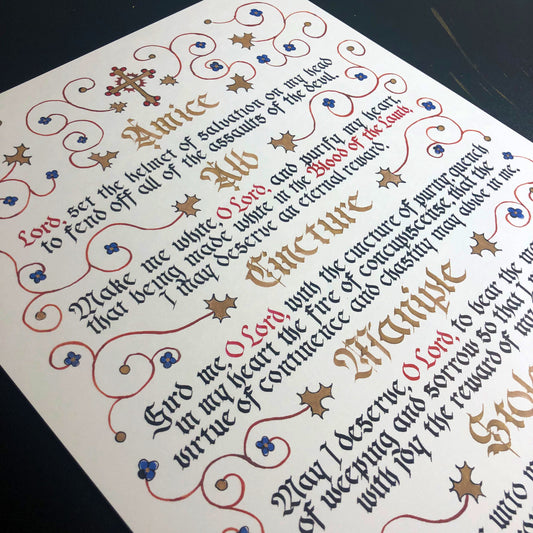 Amice
Lord, set the helmet of salvation on my head
to fend off all of the assaults of the devil.
Alb
Make me white, O Lord, and purify my heart
that being made white in the Blood of the Lamb,
I may deserve an eternal reward.
Cincture
Gird me, O Lord, with the cincture of purity quench
in my heart the fire of concupiscense that the
virtue of continence and chastity may abide in me.
Maniple
May I deserve, O Lord, to bear the
of weeping and sorrow so that I
with joy the reward of my
Stole
unto